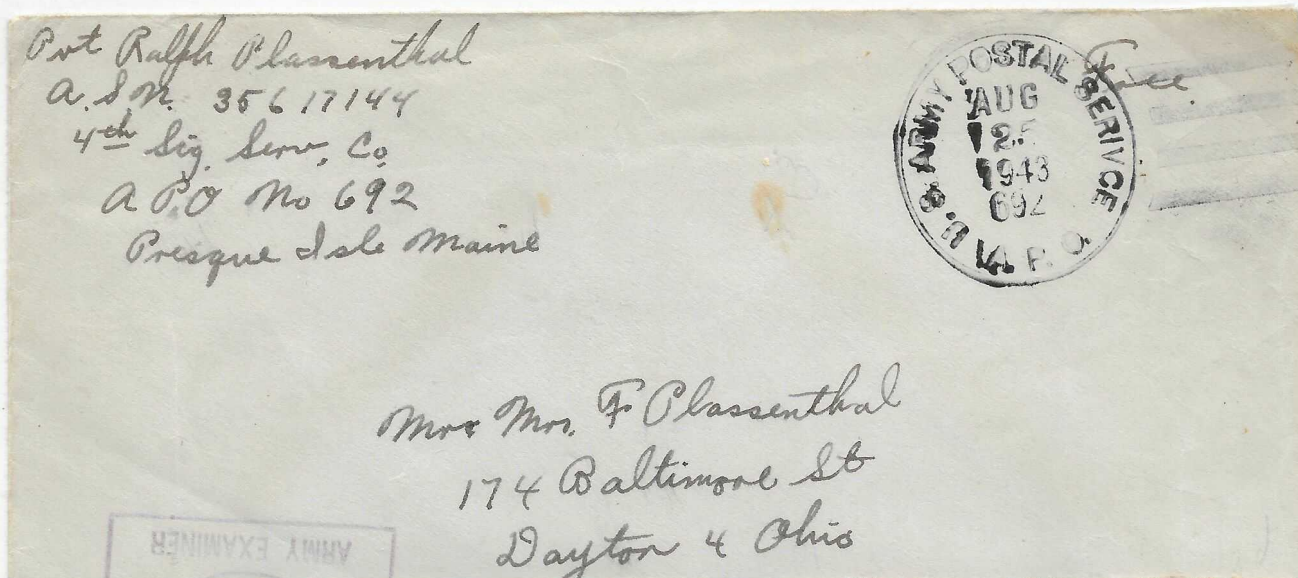 Pvt Ralph Plassenthal
A.S.N. 35617144
4th Sig. Serv. Co
A P.O No 692
Presque Isle Maine
Free.
U.S. ARMY POSTAL SERIVCE
AUG
25
1943
692
A. P. O.
Mr & Mrs. F Plassenthal
174 Baltimore St
Dayton 4 Ohio
ARMY EXAMINER